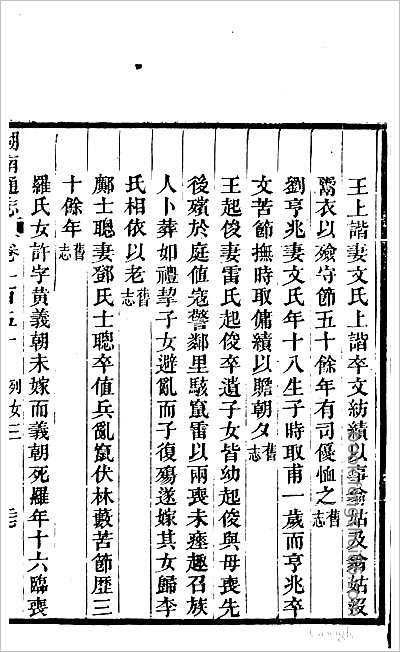 王上諧妻文氏上諧卒文紡績以事翁姑及翁姑沒
鬻衣以殮守節五十餘年有司優恤之舊志
劉亨兆妻文氏年十八生子時取甫一歲而亨兆卒
文苦節撫時取傭績以贍朝夕舊志
王起俊妻雷氏起俊卒遺子女皆幼起俊與母喪先
後殯於庭值寇警鄰里駭竄雷以兩喪未瘞趣召族
人卜葬如禮挈子女避亂而子復殤遂嫁其女歸李
氏相依以老舊志
鄺士聰妻鄧氏士聰卒值兵亂竄伏林藪苦節歷三
十餘年舊志
羅氏女許字黃義朝未嫁而義朝死羅年十六臨喪
湖南通志 卷二百五十 列女三